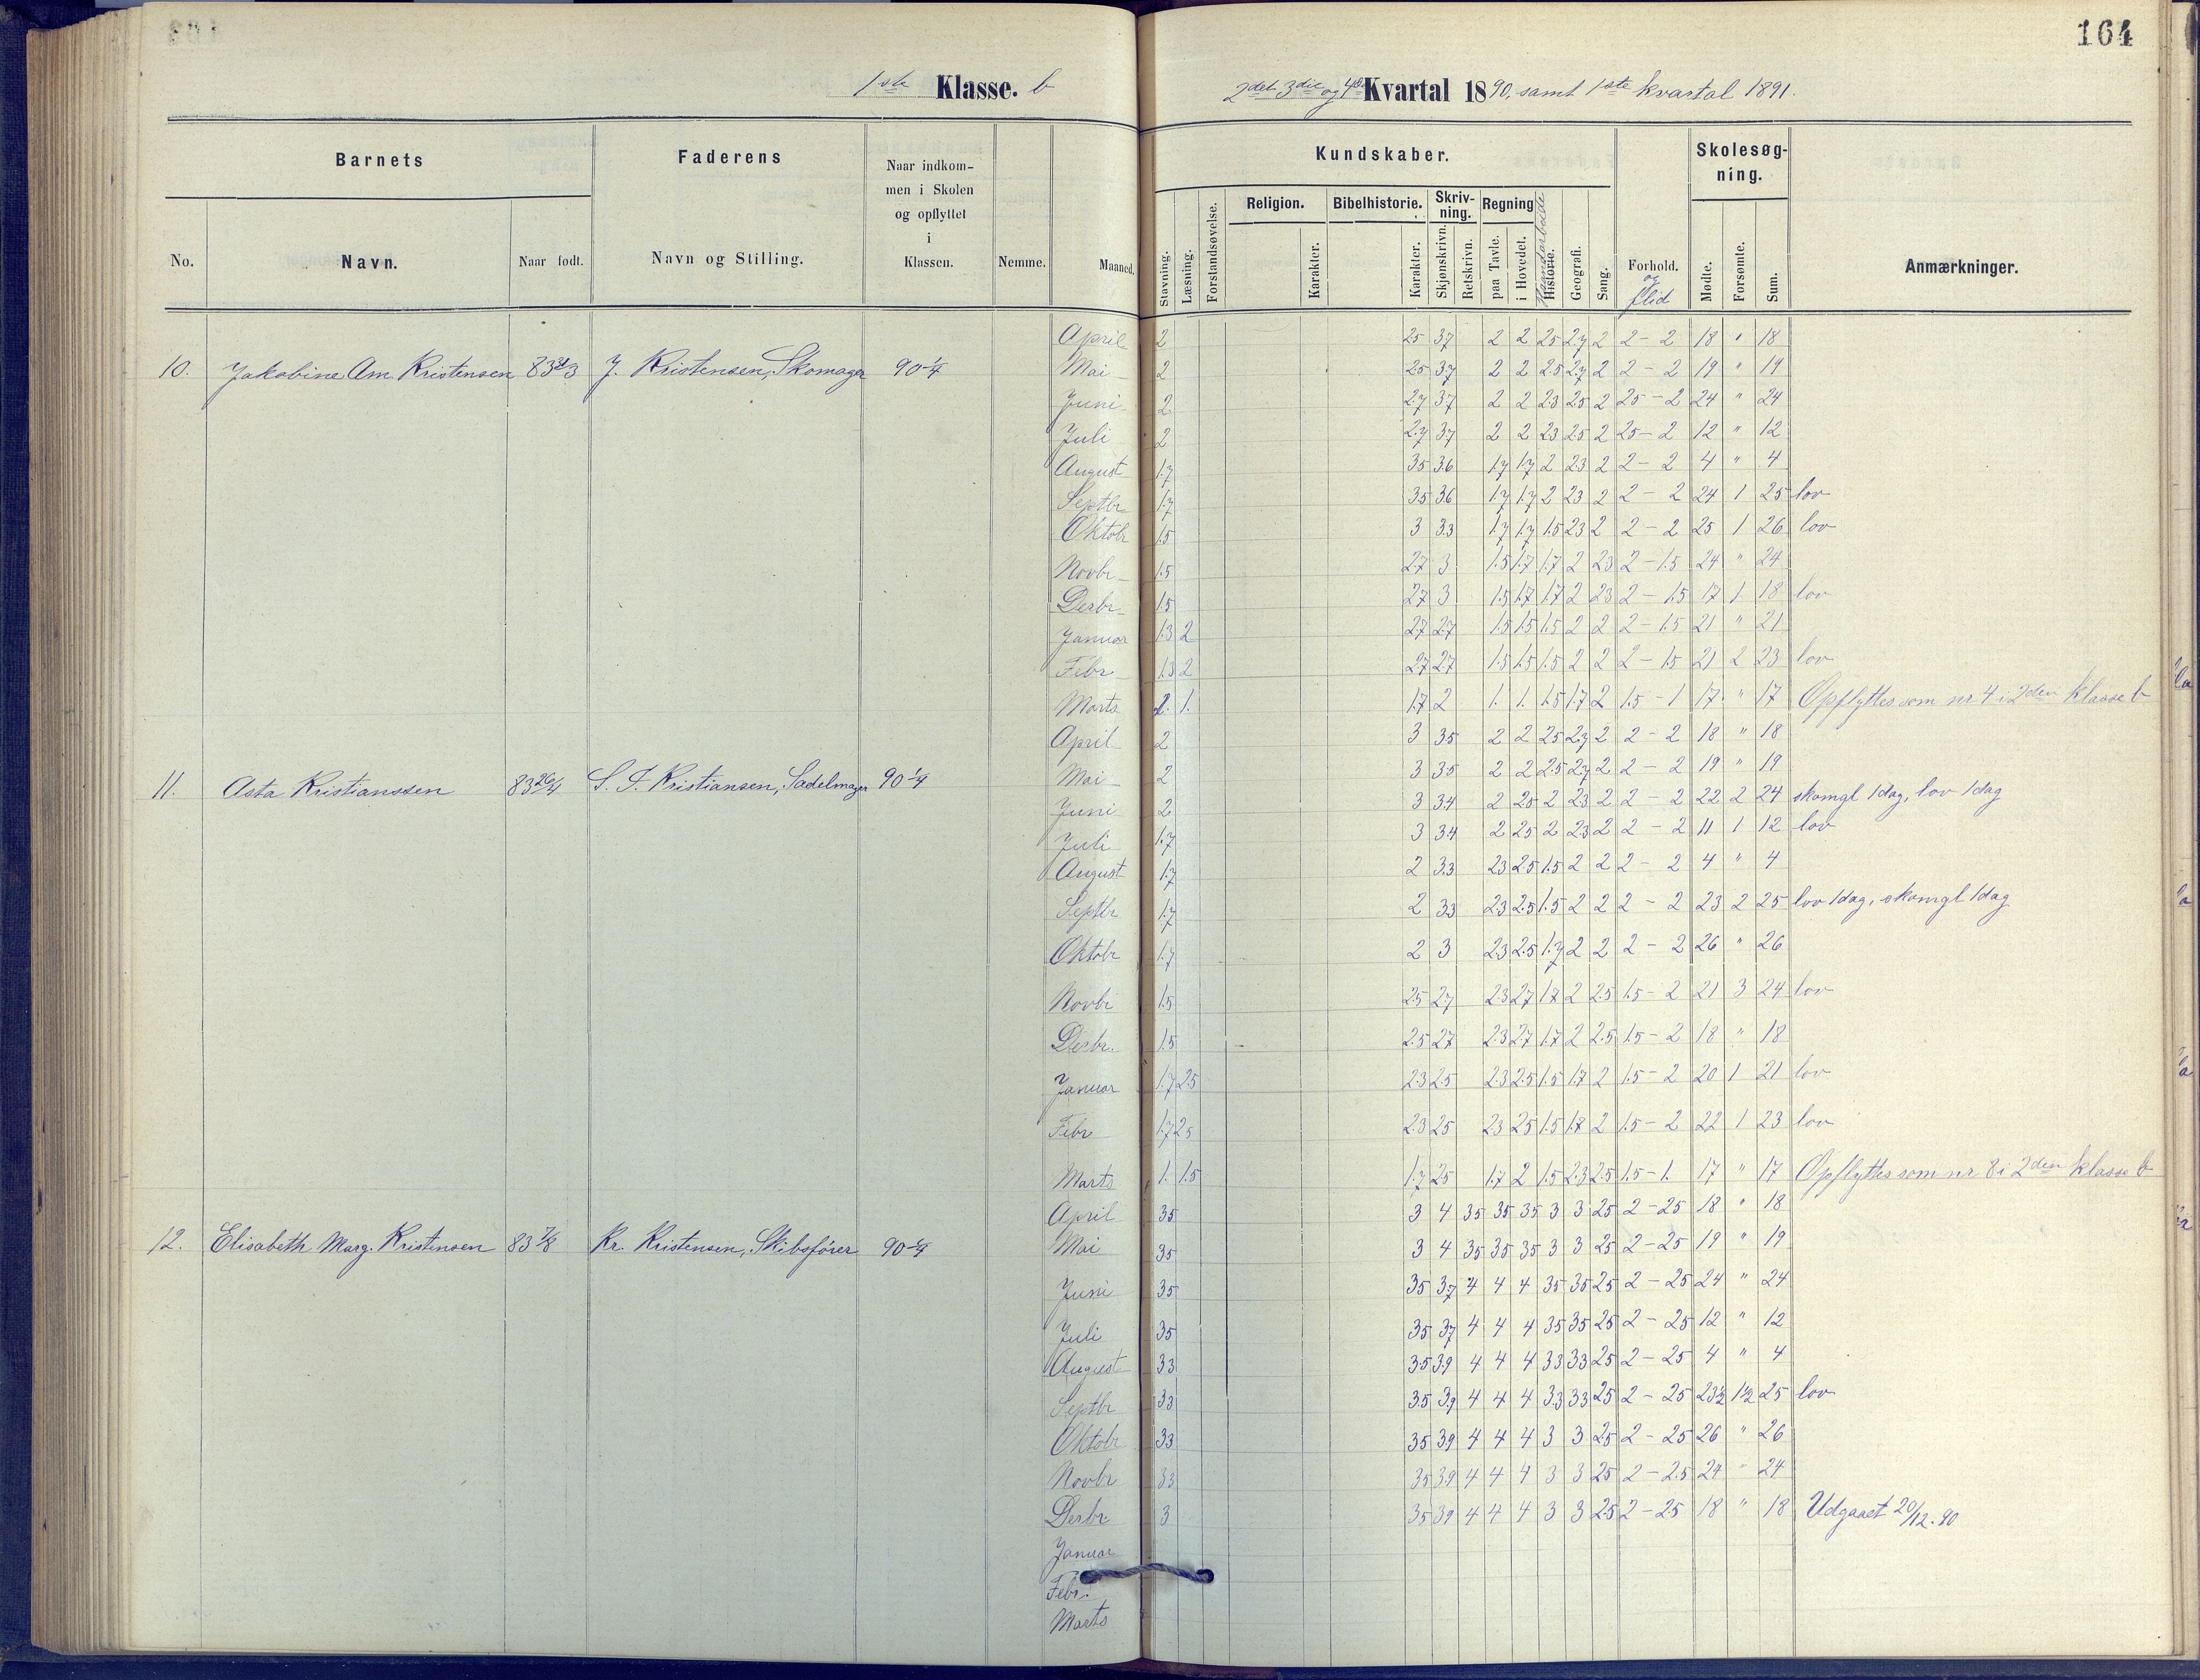 164
1ste Klasse. b
2det 3die og 4de Kvartal 1890, samt 1ste kvartal 1891.
Barnets
Faderens
Naar indkom-
men i Skolen
og opflyttet
i
Klassen.
Kundskaber.
Skolesøg-
ning.
No.
Navn.
Naar født.
Navn og Stilling.
Nemme.
Maaned.
Stavning.
Læsning.
Forstandsøvelse.
Religion.
Karakter.
Bibelhistorie.
Karakter.
Skriv-
ning.
Skjønskrivn.
Retskrivn.
Regning
paa Tavle.
i Hovedet.
Haandarbeide
Historie.
Geografi.
Sang.
Forhold.
og
flid
Mødte.
Forsømte.
Sum.
Anmærkninger.
April 2 25 37 2 2 25 27 2 2-2 18 " 18
10. Jakobine Am. Kristensen J. Kristensen, Skomager 90 1/4 Mai 2 25 37 2 2 25 27 2 2-2 19 " 19
Juni 2 27 37 2 2 23 25 2 25-2 24 " 24
Juli 2 27 37 2 2 23 25 2 25-2 12 " 12
August 1.7 35 36 1.7 1.7 2 23 2 2-2 4 " 4
Septbr 1.7 35 36 1.7 1.7 2 23 2 2-2 24 1 25 lov
Oktobr 1.5 3 33 1.7 1.7 1.5 23 2 2-2 25 1 26 lov
Novbr 1.5 27 3 1.5 1.7 1.7 2 23 2-1.5 24 " 24
Desbr 1.5 27 3 1.5 1.7 1.7 2 23 2-1.5 17 1 18 lov
Januar 1.3 2 27 27 1.5 1.5 1.5 2 2 2-1.5 21 " 21
Febr 1.3 2 27 27 1.5 1.5 1.5 2 2 2-1.5 21 2 23 lov
Marts 1. 1. 1.7 2 1. 1. 1.5 1.7 2 1.5-1 17 " 17 Opflyttes som nr 4 i 2den klasse b
April 2 3 35 2 2 25 27 2 2-2 18 " 18
11. Asta Kristianssen 83 26/4 S. J. Kristiansen, Sadelmager 90 1/4 Mai 2 3 35 2 2 25 27 2 2-2 19 " 19
Juni 2 3 34 2 25 2 23 2 2-2 22 2 24 skomgl 1 dag, lov 1 dag
Juli 1.7 3 34 2 25 2 23 2 2-2 11 1 12 lov
August 1.7 2 33 23 25 1.5 2 2 2-2 4 " 4
Septbr 1.7 2 33 23 25 1.5 2 2 2-2 23 2 25 lov 1 dag, skomgl 1 dag
Oktobr 1.7 2 3 23 25 1.7 2 2 2-2 26 " 26
Novbr 1.5 25 27 23 27 1.7 2 25 1.5-2 21 3 24 lov
Desbr. 1.5 25 27 23 27 1.7 2 25 1.5-2 18 " 18
Januar 1.7 25 23 25 23 25 1.5 1.7 2 1.5-2 20 1 21 lov
Febr 1.7 25 23 25 23 25 1.5 1.7 2 1.5-2 22 1 23 lov
Marts 1. 1.5 1.7 25 1.7 2 1.5 23 25 1.5-1. 17 " 17 Opflyttes som nr 8 i 2den klasse b
April 35 3 4 35 35 35 3 3 25 2-25 18 " 18
12. Elisabeth Marg. Kristensen 83 7/8 Kr. Kristensen, Skibsfører 90 1/4 Mai 35 3 4 35 35 35 3 3 25 2-25 19 " 19
Juni 35 35 37 4 4 4 35 35 25 2-25 24 " 24
Juli 35 35 37 4 4 4 35 35 25 2-25 12 " 12
August 33 35 39 4 4 4 33 33 25 2-25 4 " 4
Septbr 33 35 39 4 4 4 33 33 25 2-25 23½ 1½ 25 lov
Oktobr 33 35 39 4 4 4 3 3 25 2-25 26 " 26
Novbr 33 35 39 4 4 4 3 3 25 2-25 24 " 24
Desbr 3 35 39 4 4 4 3 3 25 2-25 18 " 18 Udgaaet 20/12.90
Januar
Febr.
Marts